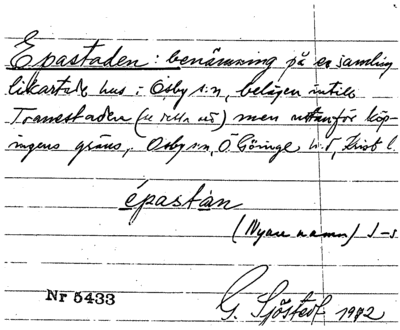 Epastaden: benämning på en samling
likartade hus i Osby s:n, belägen intill
Transtaden (se detta ord) men utanför köp-
ingens gräns, Osby s:n, Ö. Göinge h:d, Krist. l.
épastán
(Nyare namn) J-s
Nr 5433
G. Sjöstedt 1942